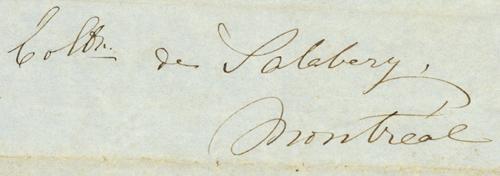 Coll. de Salabery,
Montréal